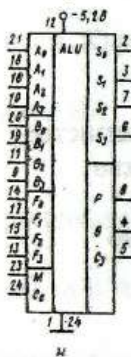 12
-5,2В
ALU
21 A₀
18 A₁
16 A₂
10 A₃
20 B₀
19 B₁
11 B₂
9 B₃
14 F₀
17 F₁
15 F₂
13 F₃
23 M
24 C₀
S₀ 2
S₁ 3
S₂ 7
S₃ 6
P 8
G 4
C₃ 5
1
24
и